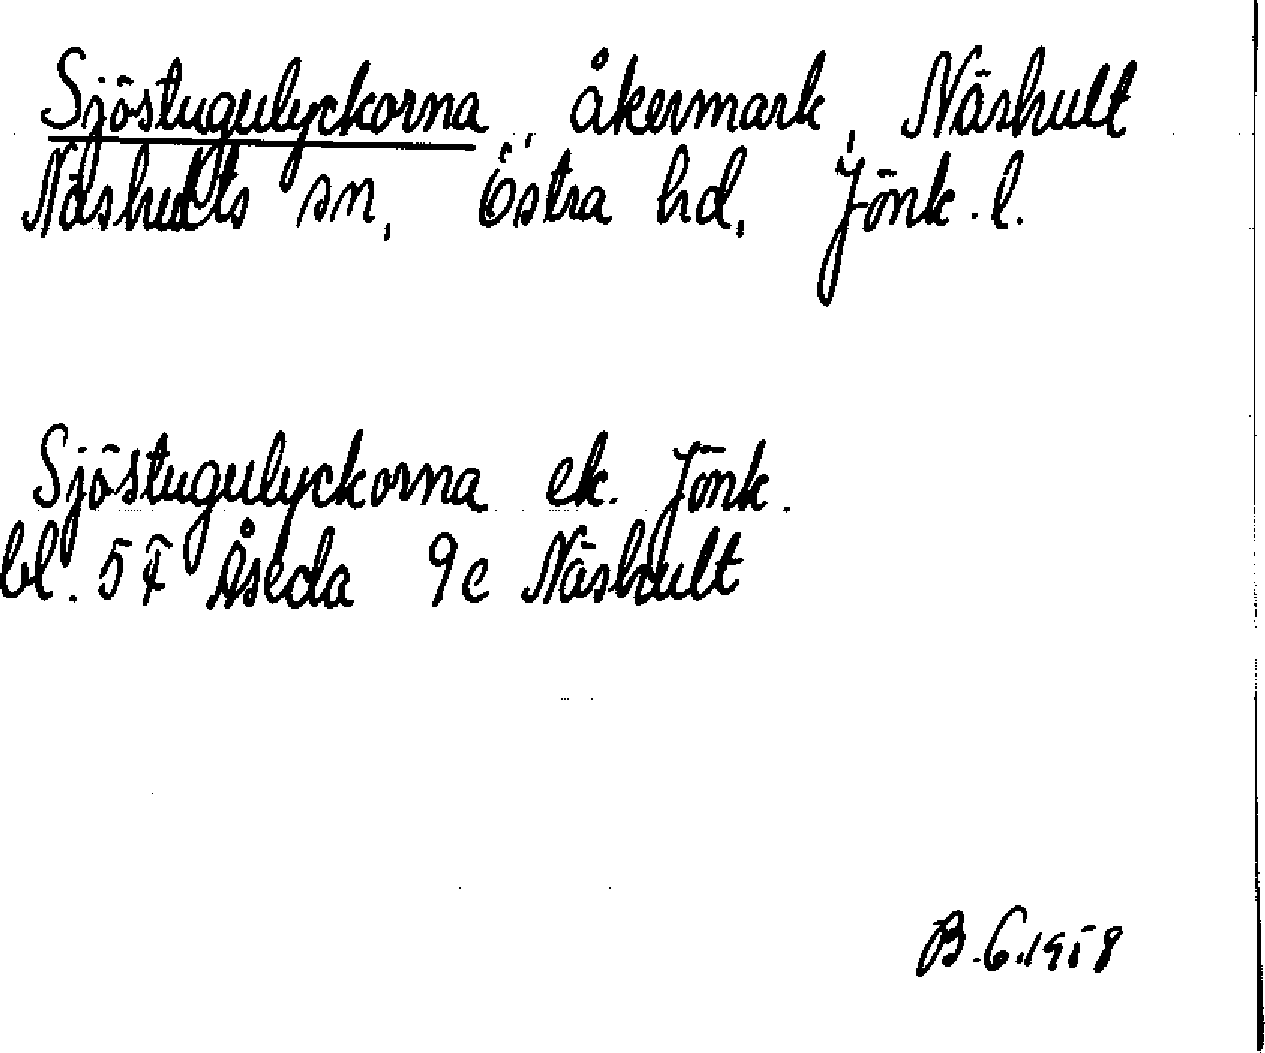 Sjöstugulyckorna, åkermark, Näshult
Näshults sn, Östra hd, Jönk. l.
Sjöstugulyckorna ek. Jönk.
bl. 5 F Åseda 9 e Näshult
B.G. 1958